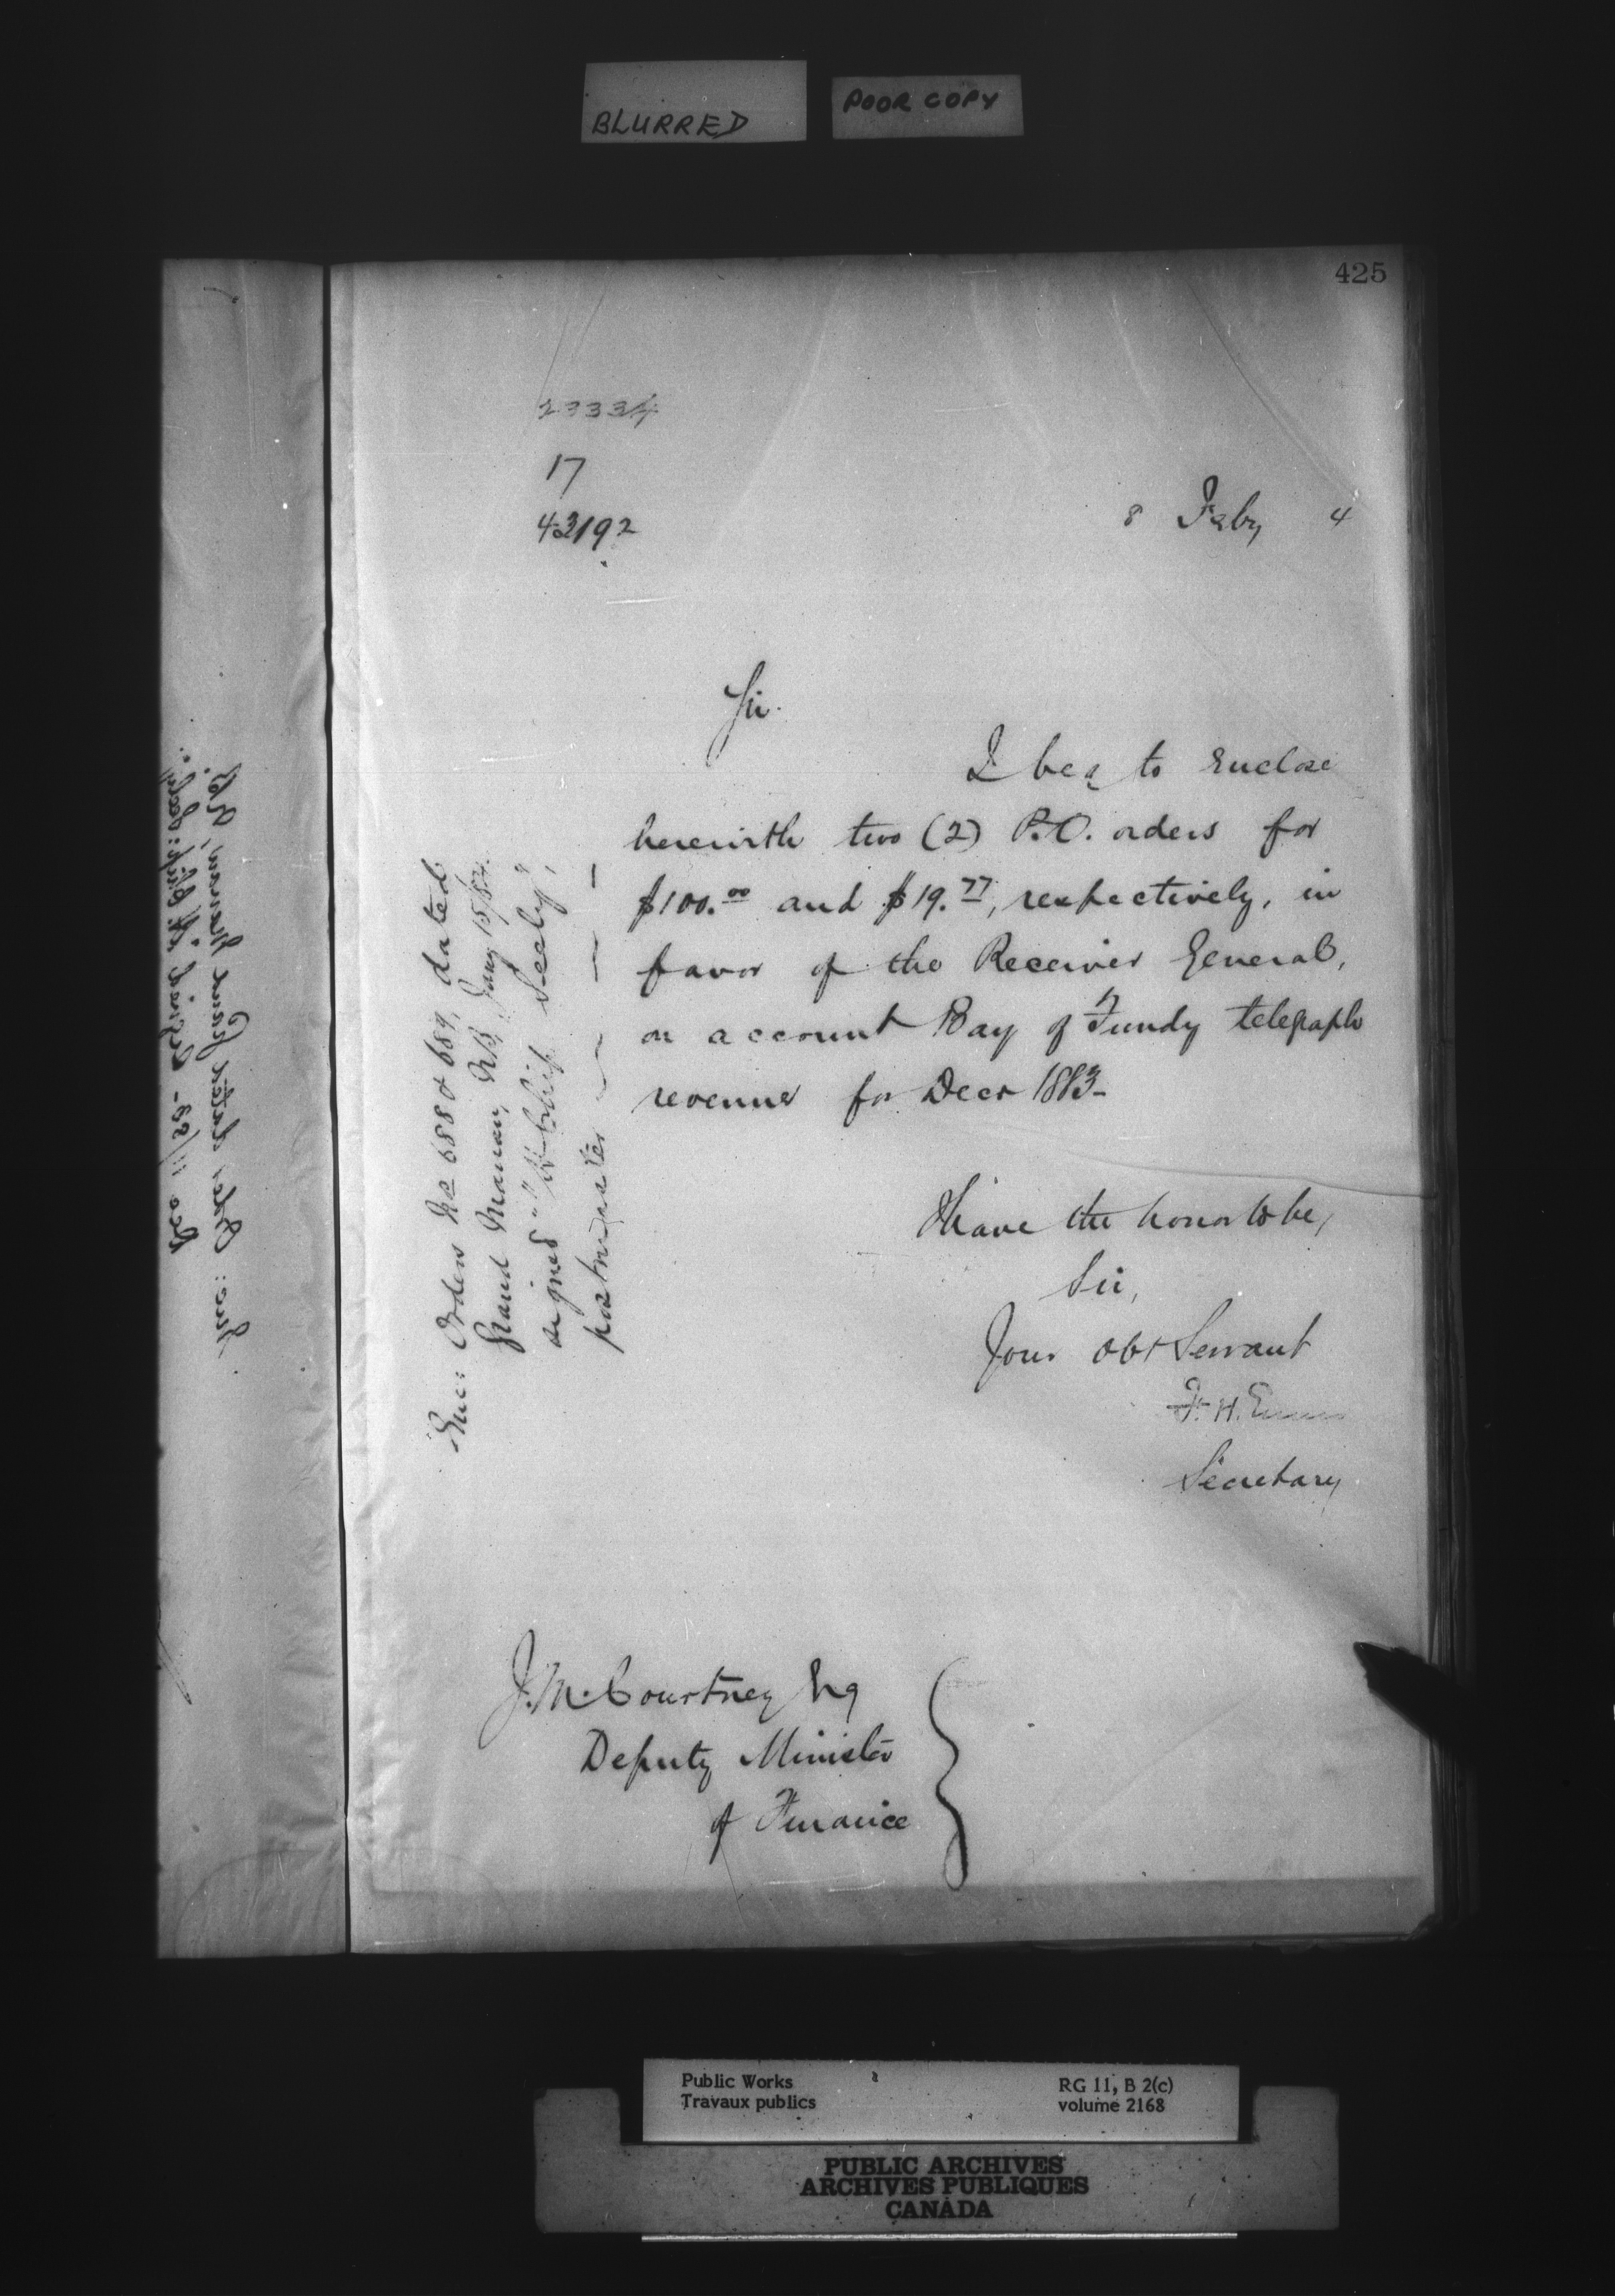 BLURRED
POOR COPY
425
23334
17
43192
8 Feby 4
Sir.
I beg to enclose
herewith two (2) P.O. orders for
$100.00 and $19.77, respectively, in
favor of the Receiver General,
on account Bay of Fundy telegraph
revenue for Decr 1883-
I have the honor to be,
Sir,
Your obt Servant
F. H. Ennis
Secretary
Enc: Orders No 688 & 689, dated
Grand Manan, NB, Jany 15/84
signed "W Chip Seely",
postmaster
J. M. Courtney Esq
Deputy Minister
of Finance
Public Works
Travaux publics
RG 11, B 2(c)
volume 2168
PUBLIC ARCHIVES
ARCHIVES PUBLIQUES
CANADA